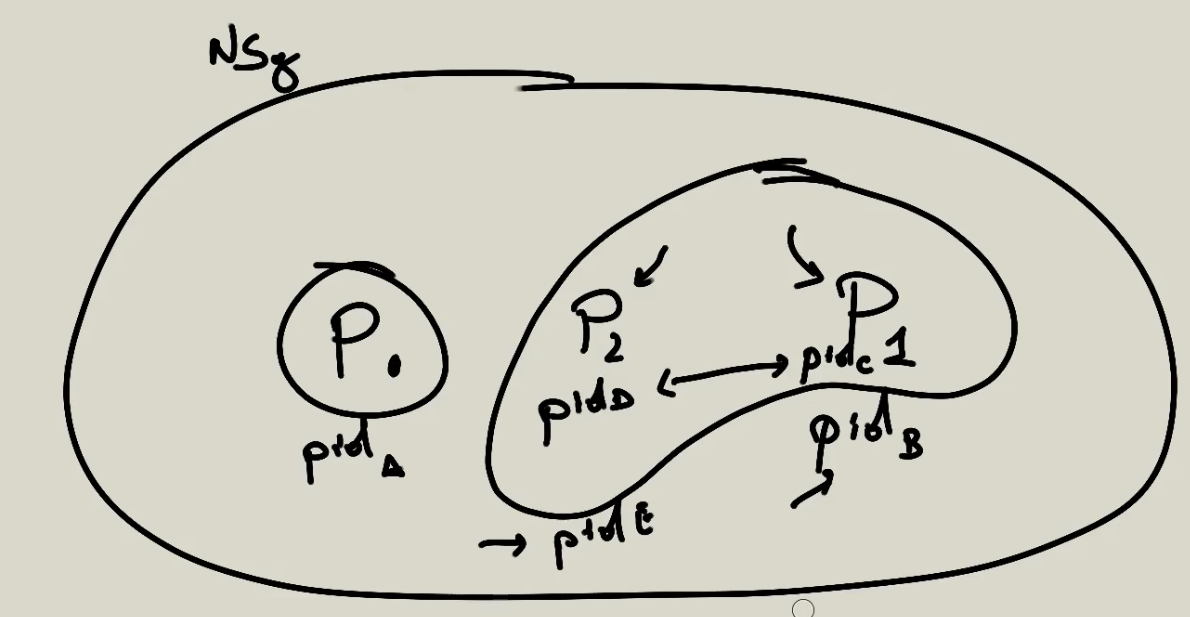 NSg
P0
pidA
P2
pidD
P1
pidC
pidB
pidE